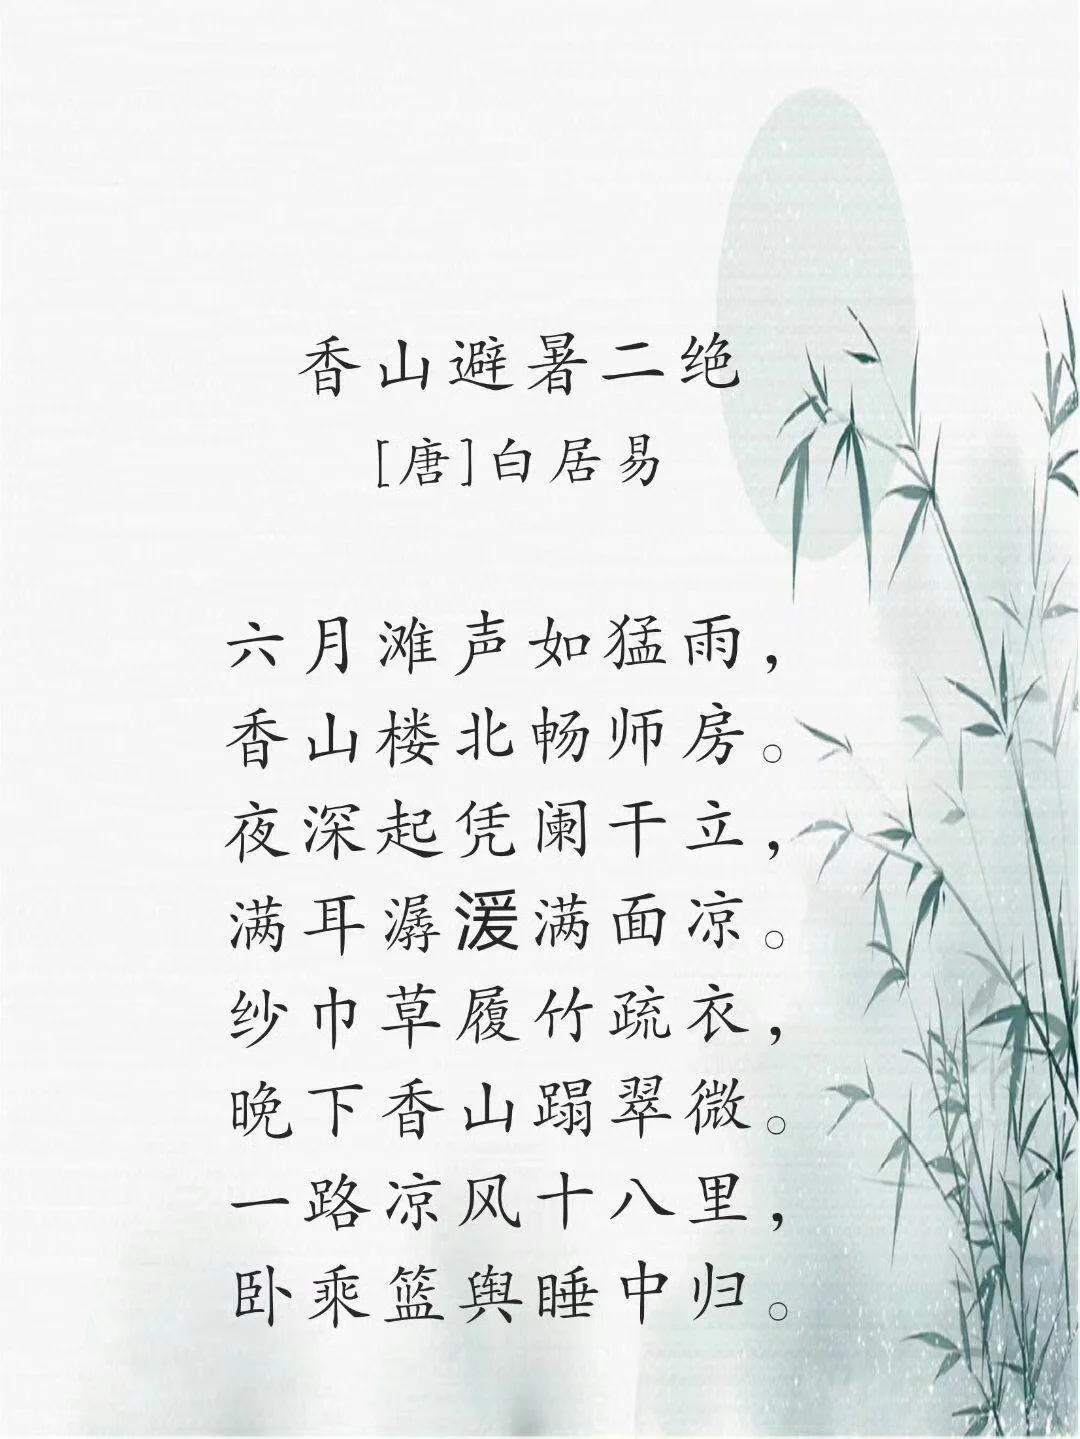 香山避暑二绝
[唐]白居易
六月滩声如猛雨，
香山楼北畅师房。
夜深起凭阑干立，
满耳潺湲满面凉。
纱巾草履竹疏衣，
晚下香山蹋翠微。
一路凉风十八里，
卧乘篮舆睡中归。